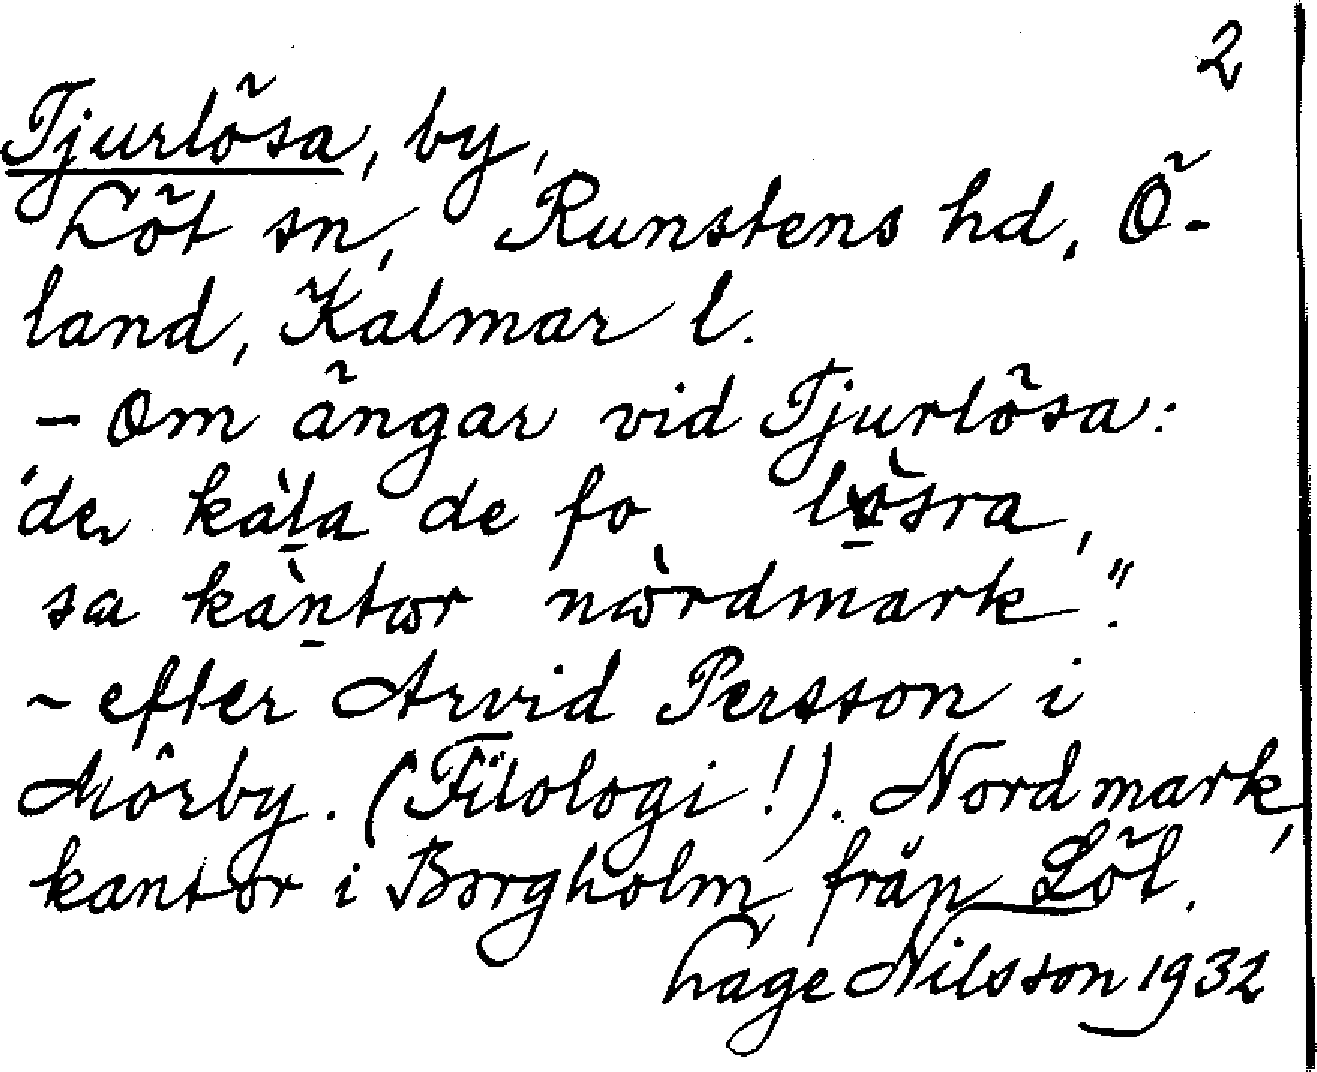 2
Tjurlösa, by,
Löt sn, Runstens hd, Ö-
land, Kalmar l.
- Om ängar vid Tjurlösa:
"de kàla de fo lösra,
sa kàntor nòrdmark".
- efter Arvid Persson i
Mörby. (Filologi!). Nordmark,
kantor i Borgholm från Löt.
Lage Nilsson 1932